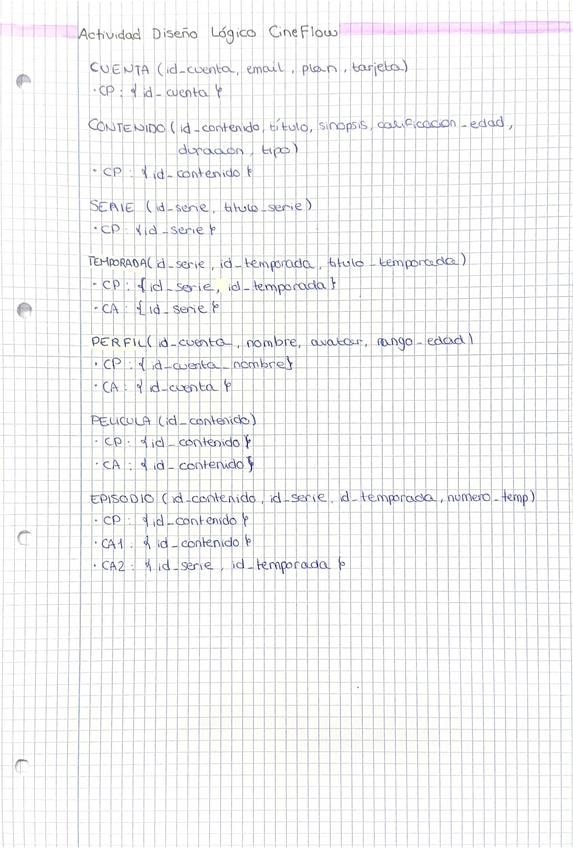 Actividad Diseño Lógico CineFlow
CUENTA (id_cuenta, email, plan, tarjeta)
· CP: {id_cuenta}
CONTENIDO (id_contenido, título, sinopsis, calificacion_edad,
duracion, tipo)
· CP: {id_contenido}
SERIE (id_serie, titulo_serie)
· CP: {id_serie}
TEMPORADA(id_serie, id_temporada, titulo_temporada)
· CP: {id_serie, id_temporada}
· CA: {id_serie}
PERFIL(id_cuenta, nombre, avatar, rango_edad)
· CP: {id_cuenta_nombre}
· CA: {id_cuenta}
PELICULA (id_contenido)
· CP: {id_contenido}
· CA: {id_contenido}
EPISODIO (id_contenido, id_serie, id_temporada, numero_temp)
· CP: {id_contenido}
· CA1: {id_contenido}
· CA2: {id_serie, id_temporada}